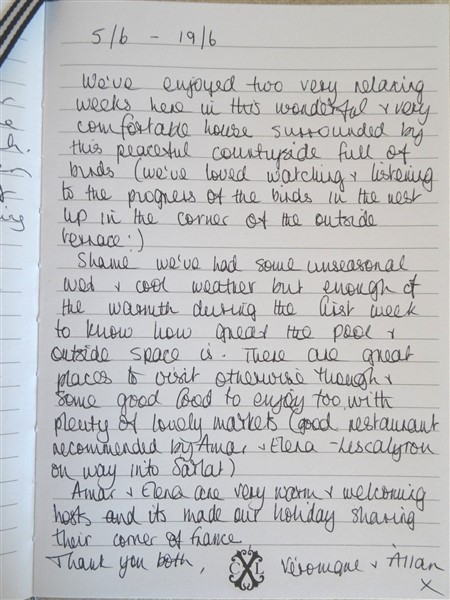 5/6 - 19/6
We've enjoyed two very relaxing
weeks here in this wonderful & very
comfortable house surrounded by
this peaceful countryside full of
birds (we've loved watching & listening
to the progress of the birds in the nest
up in the corner of the outside
terrace:)
Shame we've had some unseasonal
wet & cool weather but enough of
the warmth during the first week
to know how great the pool &
outside space is. There are great
places to visit otherwise though &
some good food to enjoy too, with
plenty of lovely markets (good restaurant
recommended by Amar & Elena -
on way into Sarlat)
Amar & Elena are very warm & welcoming
hosts and its made our holiday sharing
their corner of France
Thank you both, CXL Véronique & Allan
X